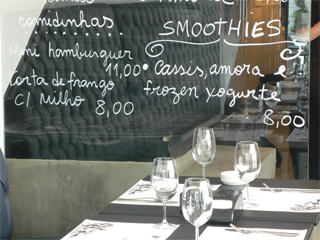 comidinhas
Mini hamburguer
11,00
Torta de frango
C/ Milho 8,00
SMOOTHIES
• Cassis, amora e
frozen yogurte
8,00